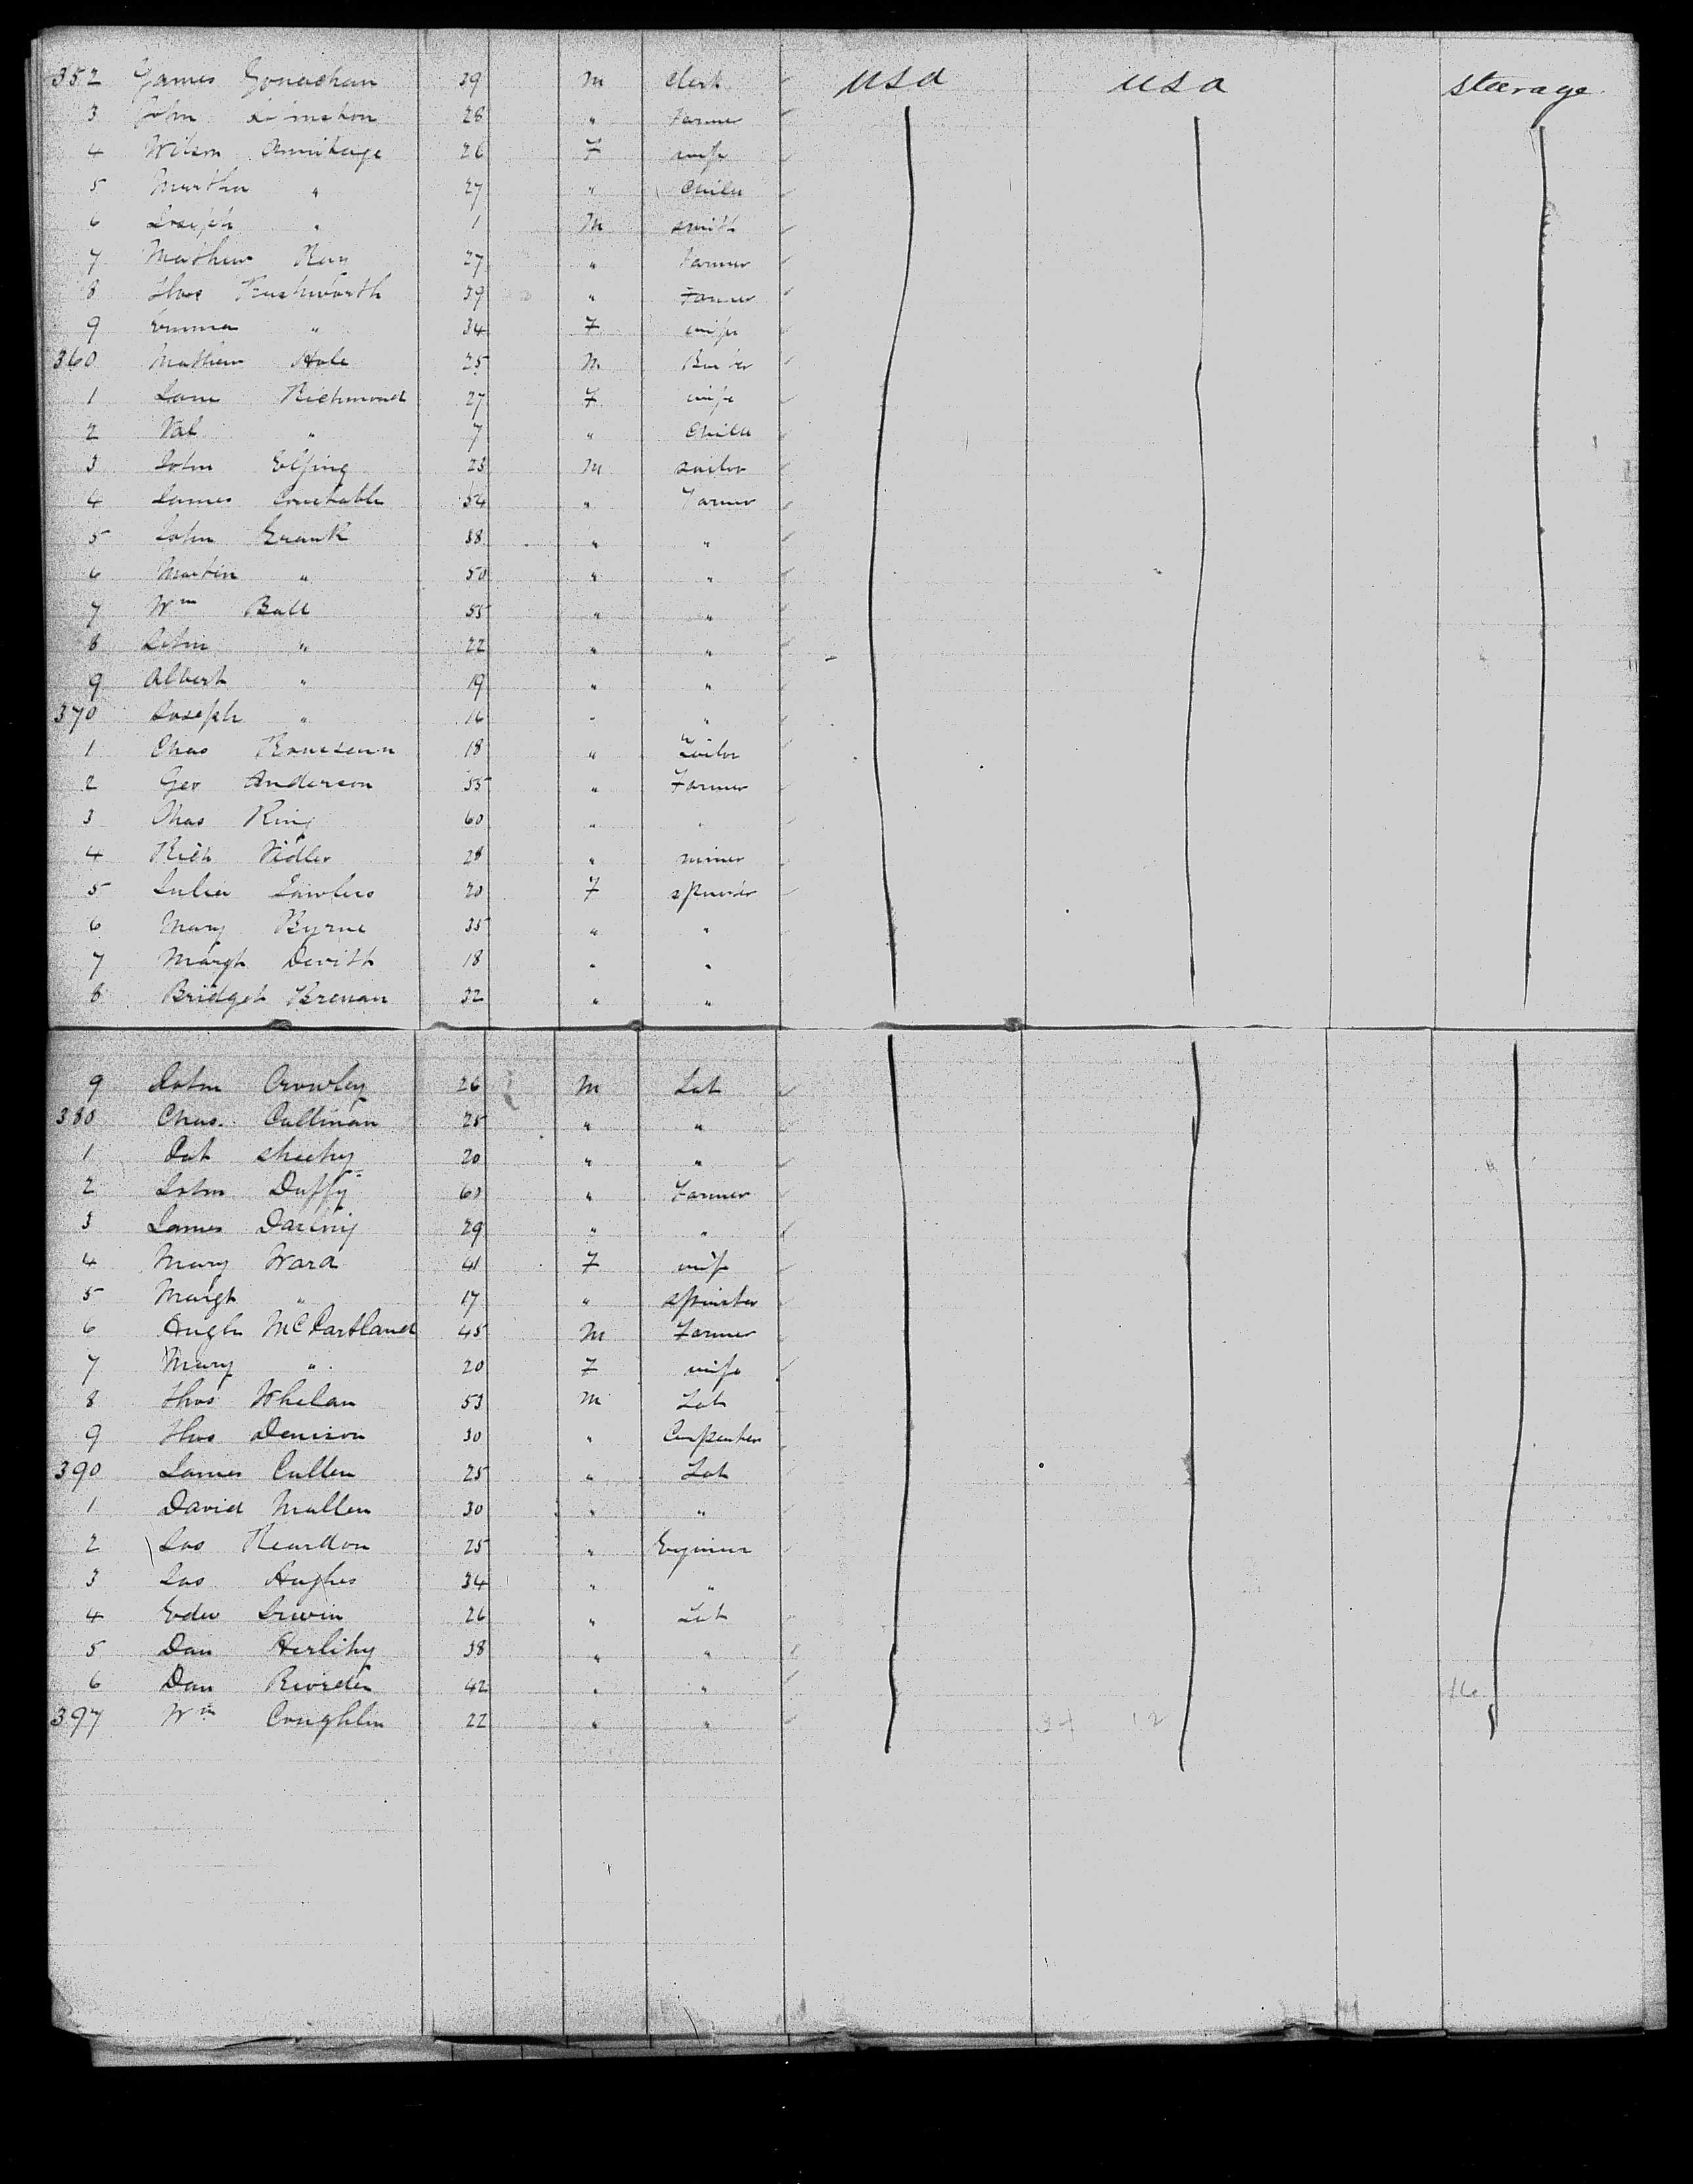 352 James 39 M Clerk USA USA Steerage
3 John 28 " Farmer
4 Wilson Armitage 26 F wife
5 Martha " 27 " Child
6 Joseph " 1 M Smith
7 Mathew 27 " Farmer
8 Thos Rushworth 39 " Farmer
9 Emma " 34 F wife
360 Mathew Hole 25 M
1 Jane Richmond 27 F wife
2 Val " 7 " Child
3 John 23 M Sailor
4 James Constable 54 " Farmer
5 John 38 " "
6 Martin " 50 " "
7 Wm Ball 55 " "
8 John " 22 " "
9 Albert " 19 " "
370 Joseph " 16 " "
1 Chas 18 "
2 Geo Anderson 55 " Farmer
3 Chas King 60 " "
4 Rich Vidler 28 " miner
5 Julia Lawless 20 F spinster
6 Mary Byrne 35 " "
7 Margt Devitt 18 " "
8 Bridget Brenan 32 " "
9 John Crowley 26 M Lab
380 Chas. Cullinan 25 " "
1 Pat Sheehy 20 " "
2 John Duffy 60 " Farmer
3 James Darling 29 " "
4 Mary Ward 41 F wife
5 Margt " 17 " spinster
6 Hugh McPartland 45 M Farmer
7 Mary " 20 F wife
8 Thos Whelan 53 M Lab
9 Thos Denison 30 " Carpenter
390 James Cullen 25 " Lab
1 David Mullen 30 " "
2 Jas Reardon 25 " Engineer
3 Jas Hughes 34 " "
4 Edw Irwin 26 " Lab
5 Dan Herlihy 38 " "
6 Dan Riorden 42 " "
397 Wm Coughlin 22 " "